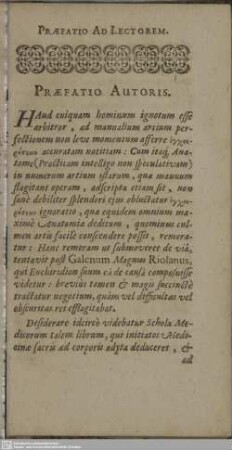 PRÆFATIO AD LECTOREM.
PRÆFATIO AUTORIS.
HAud cuiquam hominum ignotum esse
arbitror, ad manualium artium per-
fectionem non leve momentum afferre
accuratam notitiam: Cum itaq; Ana-
tome (Practicam intelligo non speculativam)
in numerum artium istarum, quæ manuum
flagitant operam, adscripta etiam sit, non
sanè debiliter splendori ejus obluctatur
ignoratio, quæ equidem omnium ma-
ximè Anatomiæ deditum, quominus cul-
men artis facilè conscendere possit, remora-
tur: Hanc remoram ut submoveret de viâ,
tentavit post Galenum Magnus Riolanus,
qui Enchiridion suum eâ de causâ composuisse
videtur: brevius tamen & magis succinctè
tractatur negotium, quàm vel difficultas vel
obscuritas rei efflagitabat.
Desiderare idcircò videbatur Schola Me-
dicorum talem librum, qui initiatos Medi-
cinæ sacris ad corporis adyta deduceret, &
ad